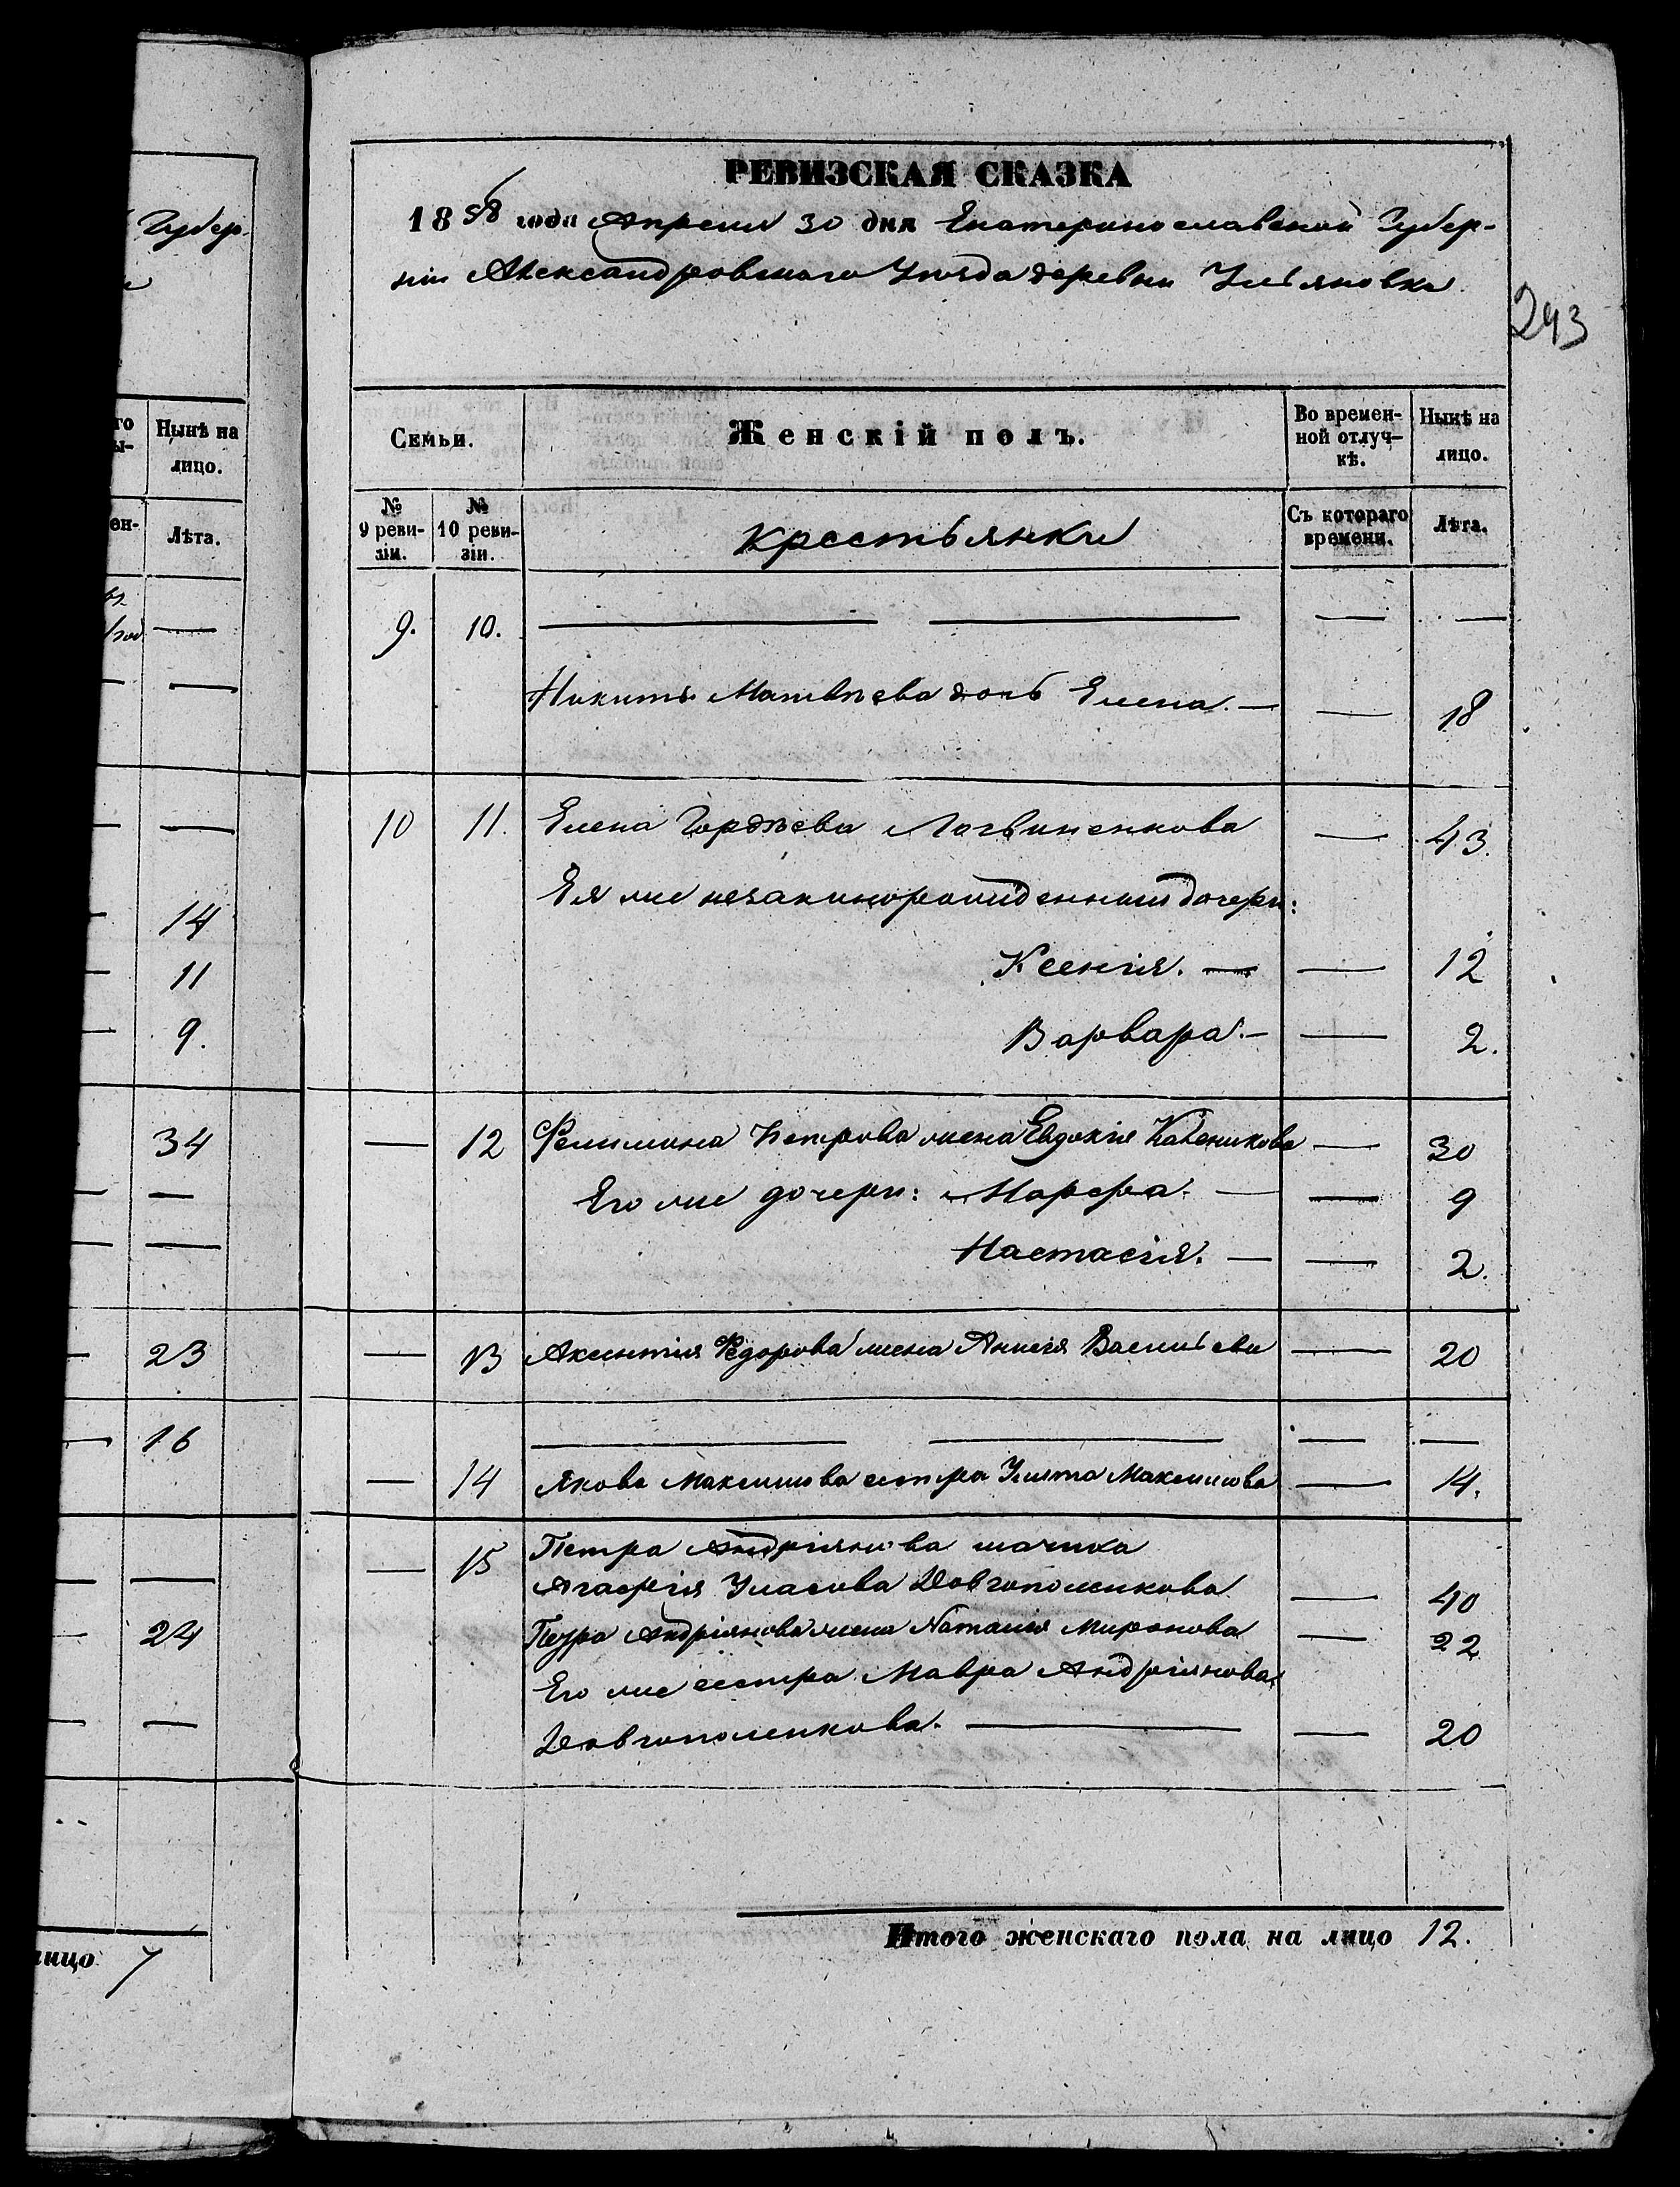 Губер-
го
ы-
Нынѣ на
лицо.
ен-
Лѣта.
14
11
9.
34
23
16
24
лицо 7
РЕВИЗСКАЯ СКАЗКА
1858 года Апреля 30 дня Екатеринославской Губер-
ніи Александровскаго Уѣзда деревни Ульяновки
293
Семьи.
Женскій полъ.
Во времен-
ной отлуч-
кѣ.
Нынѣ на
лицо.
№
9 реви-
зіи.
№
10 реви-
зіи.
Крестьянки
Съ котораго
времени.
Лѣта.
9. 10. — — — —
Никиты Матвѣева дочь Елена. — — 18
10 11. Елена Гордѣева Логвиненкова — 43.
Ея же незаконорожденныи дочери:
Ксенія. — — 12
Варвара. — — 2.
— 12 Филимона Петрова жена Евдокія — 30
Его же дочери: Марфа. — — 9
Настасія. — — 2.
— 13 Аксентія Федорова жена Анисія Васильева — 20
— — — —
— 14 Якова Максимова сестра Улита Максимова — 14.
— 15 Петра Андріянова мачиха
Агафія Уласова Довгополенкова — 40
Петра Андріянова жена Наталія Миронова — 22
Его же сестра Мавра Андріянова
Довгополенкова. — — 20
Итого женскаго пола на лицо 12.